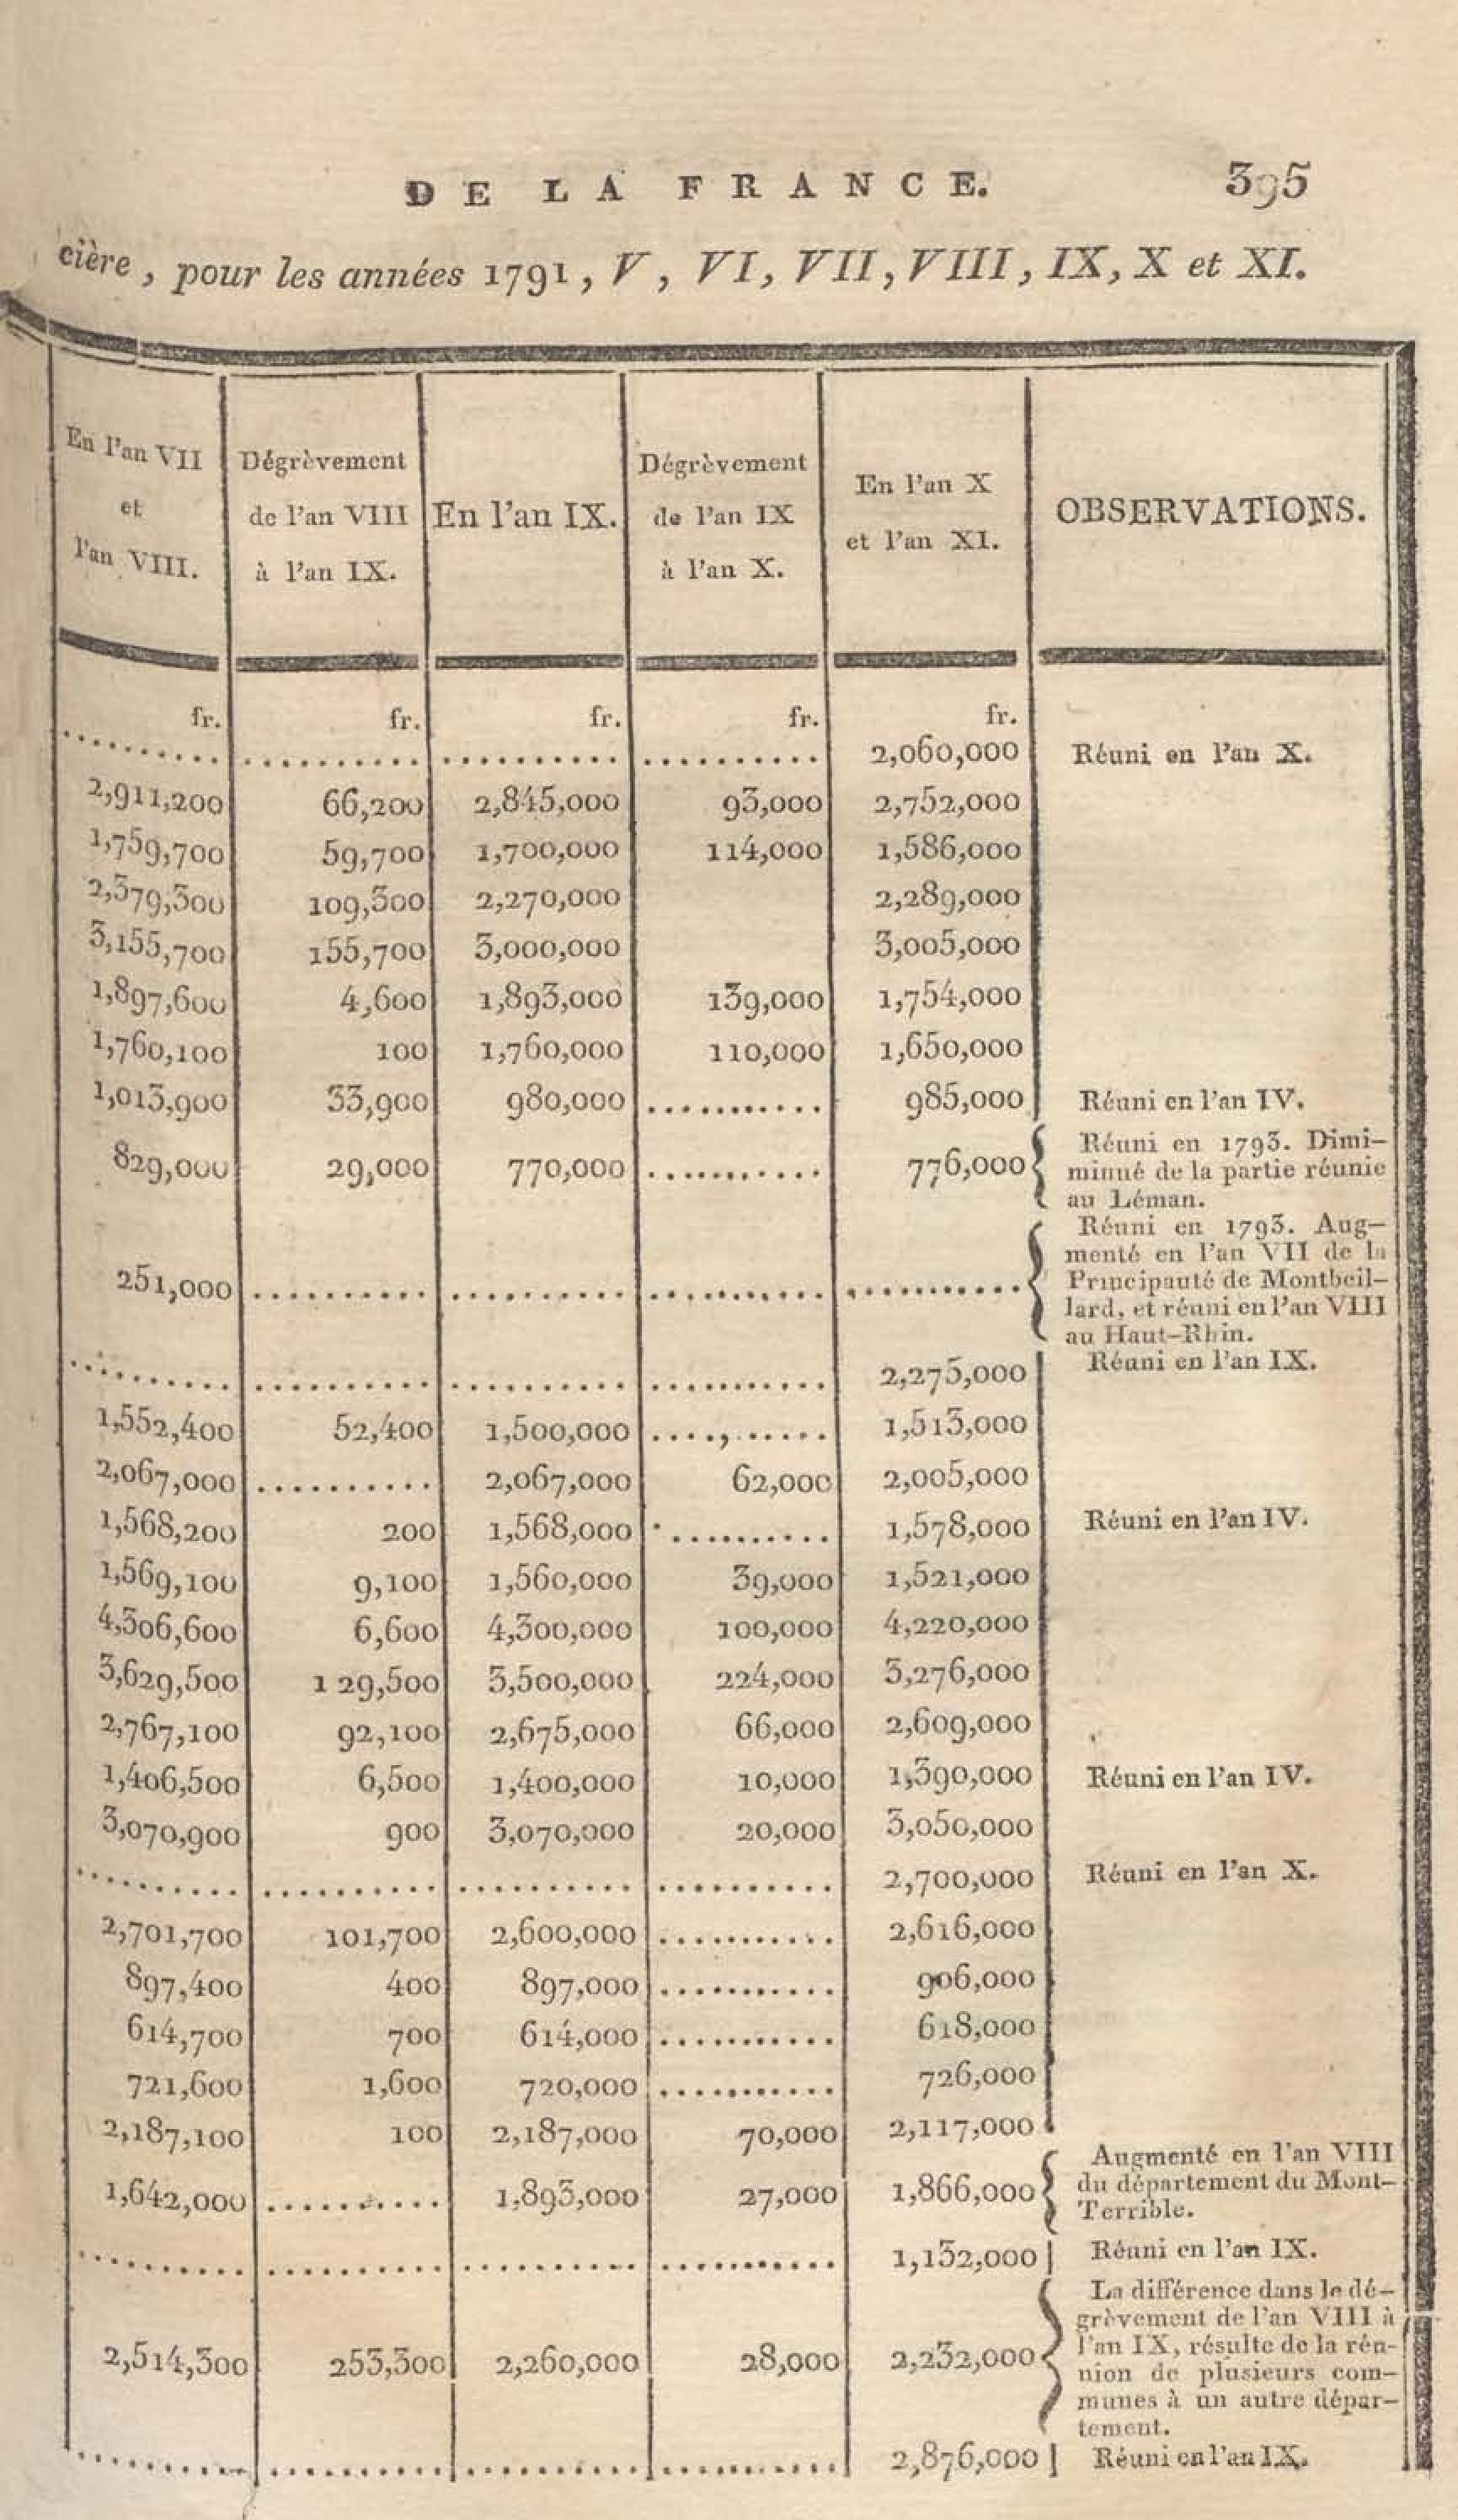 DE LA FRANCE. 395
cière, pour les années 1791, V, VI, VII, VIII, IX, X et XI.
En l'an VII et l'an VIII. Dégrèvement de l'an VIII à l'an IX. En l'an IX. Dégrèvement de l'an IX à l'an X. En l'an X et l'an XI. OBSERVATIONS.
fr. fr. fr. fr. fr.
.......... .......... .......... .......... 2,060,000 Réuni en l'an X.
2,911,200 66,200 2,845,000 93,000 2,752,000
1,759,700 59,700 1,700,000 114,000 1,586,000
2,379,300 109,300 2,270,000 2,289,000
3,155,700 155,700 3,000,000 3,005,000
1,897,600 4,600 1,893,000 139,000 1,754,000
1,760,100 100 1,760,000 110,000 1,650,000
1,013,900 33,900 980,000 .......... 985,000 Réuni en l'an IV.
829,000 29,000 770,000 .......... 776,000 Réuni en 1793. Dimi-
minué de la partie réunie
au Léman.
251,000 .......... .......... .......... .......... Réuni en 1793. Aug-
menté en l'an VII de la
Principauté de Montbeil-
lard, et réuni en l'an VIII
au Haut-Rhin.
.......... .......... .......... .......... 2,275,000 Réuni en l'an IX.
1,552,400 52,400 1,500,000 .......... 1,513,000
2,067,000 .......... 2,067,000 62,000 2,005,000
1,568,200 200 1,568,000 .......... 1,578,000 Réuni en l'an IV.
1,569,100 9,100 1,560,000 39,000 1,521,000
4,306,600 6,600 4,300,000 100,000 4,220,000
3,629,500 129,500 3,500,000 224,000 3,276,000
2,767,100 92,100 2,675,000 66,000 2,609,000
1,406,500 6,500 1,400,000 10,000 1,390,000 Réuni en l'an IV.
3,070,900 900 3,070,000 20,000 3,050,000
.......... .......... .......... .......... 2,700,000 Réuni en l'an X.
2,701,700 101,700 2,600,000 .......... 2,616,000
897,400 400 897,000 .......... 906,000
614,700 700 614,000 .......... 618,000
721,600 1,600 720,000 .......... 726,000
2,187,100 100 2,187,000 70,000 2,117,000
1,642,000 .......... 1,893,000 27,000 1,866,000 Augmenté en l'an VIII
du département du Mont-
Terrible.
.......... .......... .......... .......... 1,132,000 Réuni en l'an IX.
2,514,300 253,300 2,260,000 28,000 2,232,000 La différence dans le dé-
grèvement de l'an VIII à
l'an IX, résulte de la réu-
nion de plusieurs com-
munes à un autre dépar-
tement.
.......... .......... .......... .......... 2,876,000 Réuni en l'an IX.